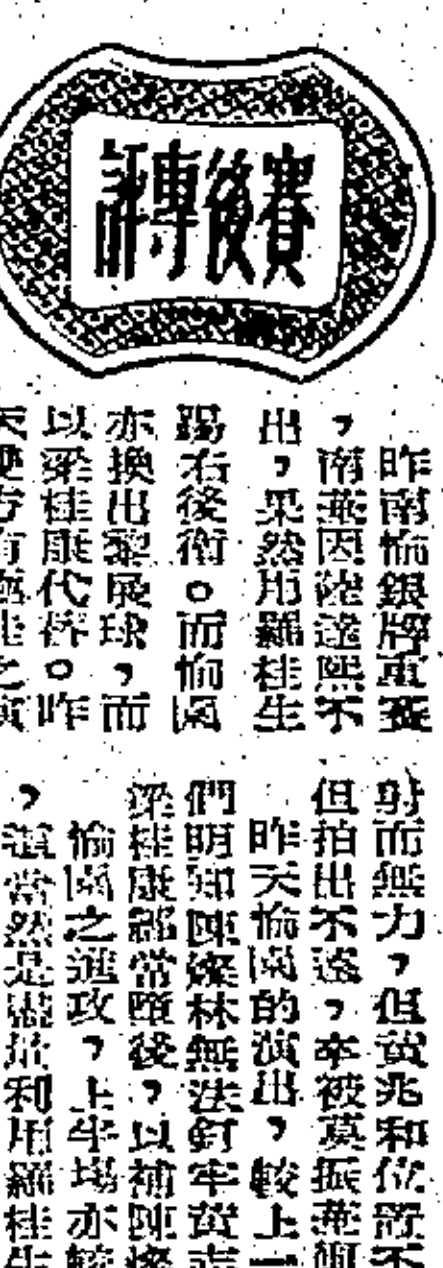 賽後專評
昨南愉銀牌重賽
,南華因陸達熙不
出,果然用羅桂生
踢右後衛。而愉園
亦換出黎展球,而
以梁桂康代替。昨
天雙方有極佳之演
射而無力,但黃兆和位置不
但拍出不遠,卒被莫振華
昨天愉園的演出,較上一
們明知陳燦林無法釘牢黃志
梁桂康都常墮後,以補陳燦
愉園之進攻,上半場亦較
,這當然是鑑於利用羅桂生